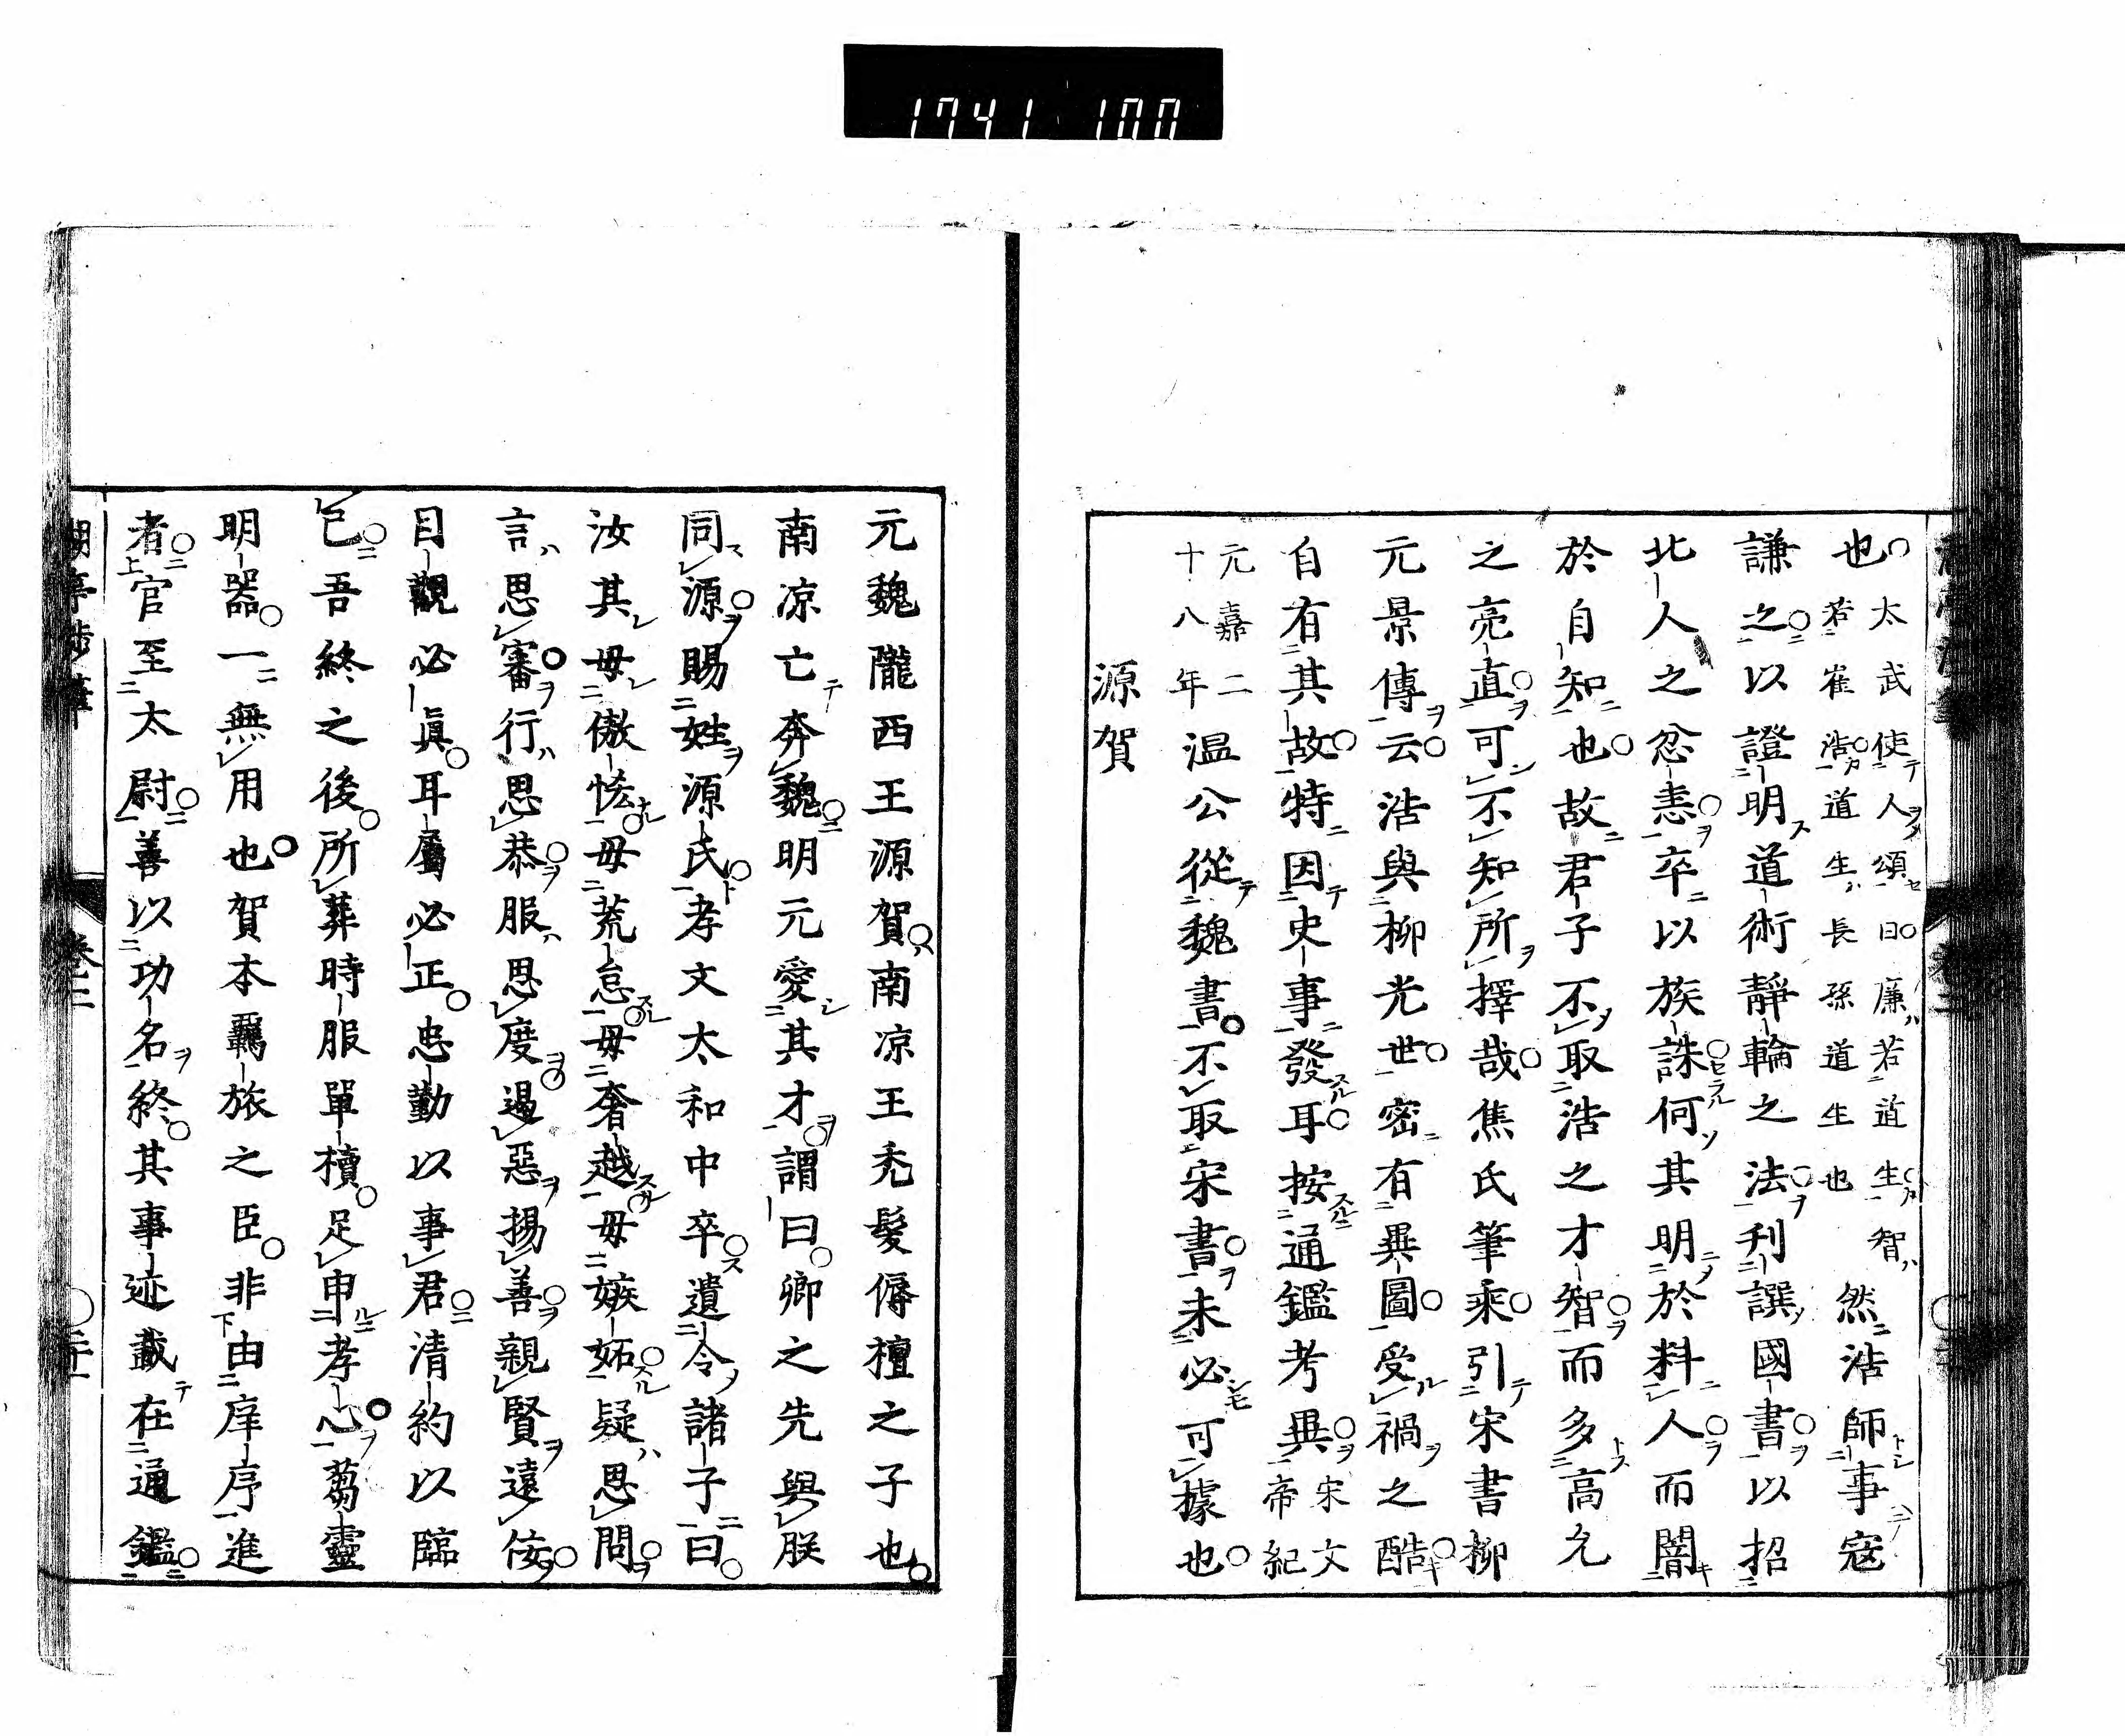 1741 100
也太武使人頌曰廉若道生智
若崔浩道生長孫道生也然浩師事寇
謙之以證明道術靜輪之法利譔國書以招
北人之忿恚卒以族誅何其明於料人而闇
於自知也故君子不取浩之才智而多高允
之亮直可不知所擇哉焦氏筆乘引宋書柳
元景傳云浩與柳光世密有異圖受禍之酷
自有其故特因史事發耳按通鑑考異宋文帝紀
元嘉二十八年温公從魏書不取宋書未必可據也
源賀
元魏隴西王源賀南凉王禿髮傉檀之子也
南凉亡奔魏明元愛其才謂曰卿之先與朕
同源賜姓源氏孝文太和中卒遺令諸子曰
汝其毋傲恡毋荒怠毋奢越毋嫉妬疑思問
言思審行思恭服思度遏惡揚善親賢遠佞
目觀必真耳屬必正忠勤以事君清約以臨
己吾終之後所葬時服單櫝足申孝心蒭靈
明器一無用也賀本羈旅之臣非由庠序進
者官至太尉善以功名終其事迹載在通鑑
卷三